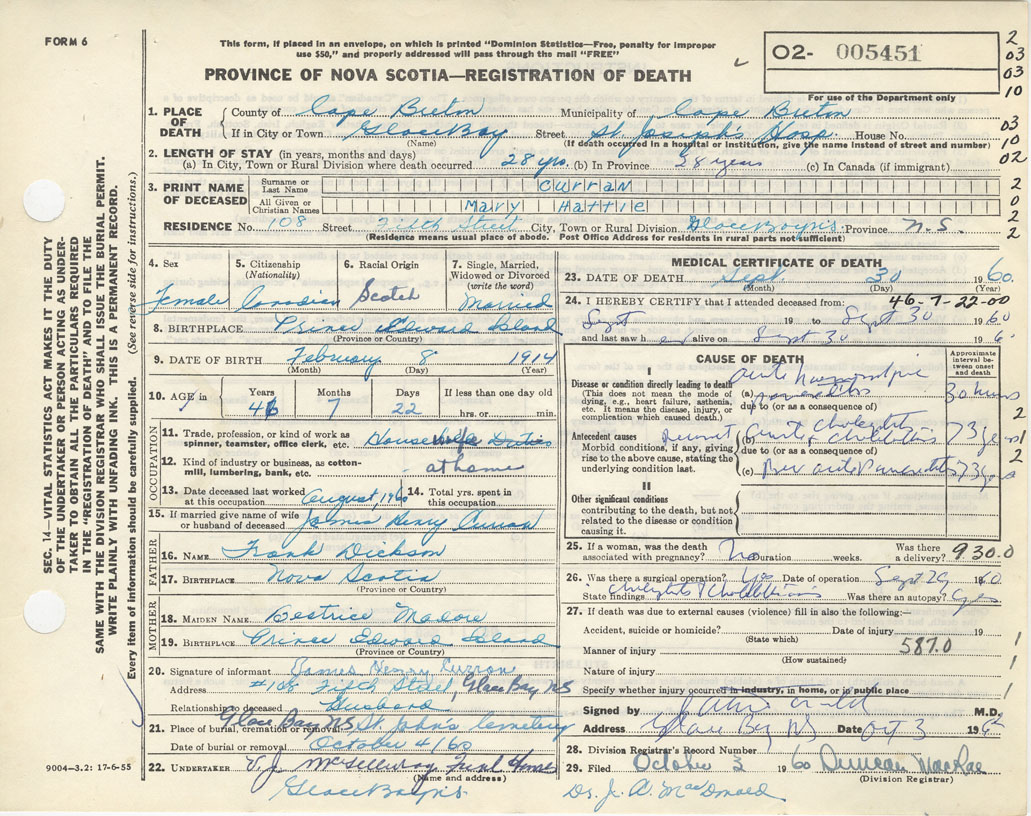 FORM 6
This form, if placed in an envelope, on which is printed "Dominion Statistics—Free, penalty for improper
use $50," and properly addressed will pass through the mail "FREE"
PROVINCE OF NOVA SCOTIA—REGISTRATION OF DEATH
O2- 005451
For use of the Department only
2
03
03
10
03
10
02
2
0
2
2
1. PLACE OF DEATH
County of Cape Breton Municipality of Cape Breton
If in City or Town Glace Bay Street St. Joseph's Hosp. House No.
(Name) (If death occurred in a hospital or institution, give the name instead of street and number)
2. LENGTH OF STAY (in years, months and days)
(a) In City, Town or Rural Division where death occurred. 28 yrs. (b) In Province 28 years (c) In Canada (if immigrant)
3. PRINT NAME OF DECEASED
Surname or Last Name Curran
All Given or Christian Names Mary Hattie
RESIDENCE No. 108 Street Fifth Street City, Town or Rural Division Glace Bay N.S. Province N.S.
(Residence means usual place of abode. Post Office Address for residents in rural parts not sufficient)
4. Sex 5. Citizenship (Nationality) 6. Racial Origin 7. Single, Married, Widowed or Divorced (write the word)
Female Canadian Scotch Married
8. BIRTHPLACE Prince Edward Island
(Province or Country)
9. DATE OF BIRTH February 8 1914
(Month) (Day) (Year)
10. AGE in Years Months Days If less than one day old
46 7 22 hrs. or min.
OCCUPATION
11. Trade, profession, or kind of work as spinner, teamster, office clerk, etc. Housewife Duties
12. Kind of industry or business, as cotton-mill, lumbering, bank, etc. at home
13. Date deceased last worked at this occupation August, 1960 14. Total yrs. spent in this occupation
15. If married give name of wife or husband of deceased James Henry Curran
FATHER
16. NAME Frank Dickson
17. BIRTHPLACE Nova Scotia
(Province or Country)
MOTHER
18. MAIDEN NAME
19. BIRTHPLACE Prince Edward Island
(Province or Country)
20. Signature of informant James Henry Curran
Address #108 Fifth Street, Glace Bay NS
Relationship to deceased Husband
21. Place of burial, cremation or removal Glace Bay NS St. John's Cemetery
Date of burial or removal October 4/60
22. UNDERTAKER V.J. McGillivray Funl Home
(Name and address)
Glace Bay N.S.
9004–3.2: 17-6-55
SEC. 14—VITAL STATISTICS ACT MAKES IT THE DUTY
OF THE UNDERTAKER OR PERSON ACTING AS UNDER-
TAKER TO OBTAIN ALL THE PARTICULARS REQUIRED
IN THE "REGISTRATION OF DEATH" AND TO FILE THE
SAME WITH THE DIVISION REGISTRAR WHO SHALL ISSUE THE BURIAL PERMIT.
WRITE PLAINLY WITH UNFADING INK. THIS IS A PERMANENT RECORD.
Every item of information should be carefully supplied. (See reverse side for instructions.)
MEDICAL CERTIFICATE OF DEATH
23. DATE OF DEATH Sept 30 1960.
(Month) (Day) (Year)
24. I HEREBY CERTIFY that I attended deceased from: 46-7-22-00
Sept 19 to Sept 30 1960
and last saw her alive on Sept 30 196
CAUSE OF DEATH
Approximate interval between onset and death
I
Disease or condition directly leading to death
(This does not mean the mode of dying, e.g., heart failure, asthenia, etc. It means the disease, injury, or complication which caused death.)
(a) acute
due to (or as a consequence of)
30 hours
2
Antecedent causes
Morbid conditions, if any, giving rise to the above cause, stating the underlying condition last.
(b)
due to (or as a consequence of)
(c)
1
2
II
Other significant conditions
contributing to the death, but not related to the disease or condition causing it.
25. If a woman, was the death associated with pregnancy? No Duration weeks. Was there a delivery? 930.0
26. Was there a surgical operation? Yes Date of operation Sept 29 1960
State findings Was there an autopsy? Yes
27. If death was due to external causes (violence) fill in also the following:—
Accident, suicide or homicide? Date of injury 19
(State which)
Manner of injury 587.0
(How sustained)
Nature of injury
Specify whether injury occurred in industry, in home, or in public place
1
1
1
Signed by M.D.
Address Glace Bay NS Date Oct 3 19
28. Division Registrar's Record Number
29. Filed October 3 1960 Duncan MacRae
(Division Registrar)
Dr. J. A. MacDonald